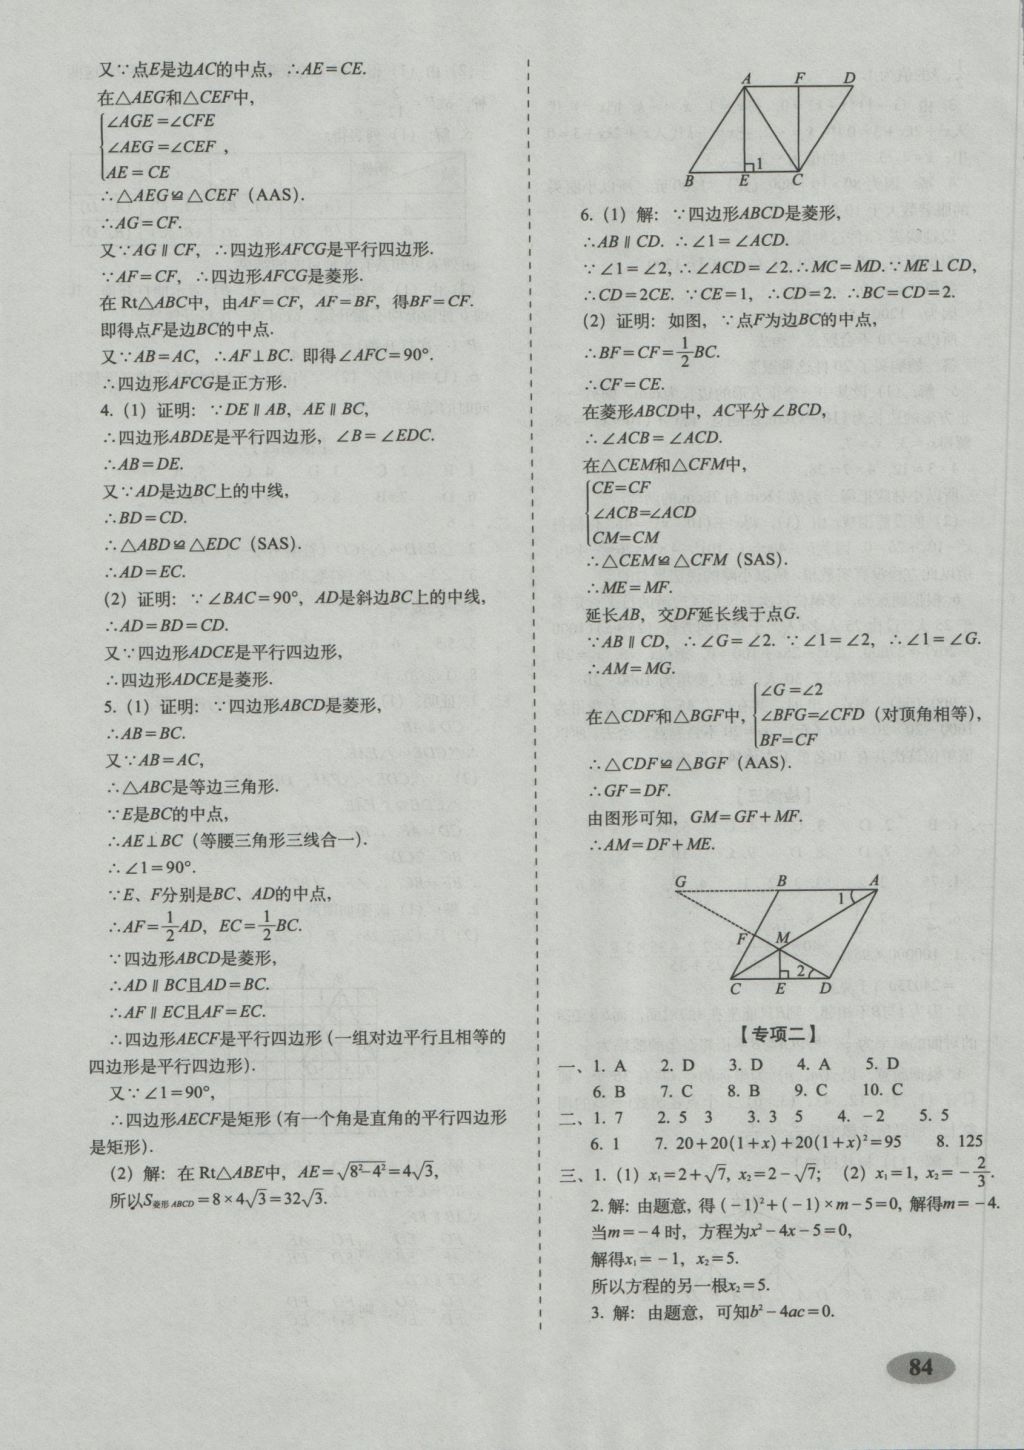 又∵点E是边AC的中点，∴AE=CE.
在△AEG和△CEF中，
∠AGE=∠CFE
∠AEG=∠CEF ，
AE=CE
∴△AEG≌△CEF（AAS）.
∴AG=CF.
又∵AG∥CF，∴四边形AFCG是平行四边形.
∵AF=CF，∴四边形AFCG是菱形.
在Rt△ABC中，由AF=CF，AF=BF，得BF=CF.
即得点F是边BC的中点.
又∵AB=AC，∴AF⊥BC. 即得∠AFC=90°.
∴四边形AFCG是正方形.
4.（1）证明：∵DE∥AB，AE∥BC，
∴四边形ABDE是平行四边形，∠B=∠EDC.
∴AB=DE.
又∵AD是边BC上的中线，
∴BD=CD.
∴△ABD≌△EDC（SAS）.
∴AD=EC.
（2）证明：∵∠BAC=90°，AD是斜边BC上的中线，
∴AD=BD=CD.
又∵四边形ADCE是平行四边形，
∴四边形ADCE是菱形.
5.（1）证明：∵四边形ABCD是菱形，
∴AB=BC.
又∵AB=AC，
∴△ABC是等边三角形.
∵E是BC的中点，
∴AE⊥BC（等腰三角形三线合一）.
∴∠1=90°.
∵E、F分别是BC、AD的中点，
∴AF=1/2AD，EC=1/2BC.
∵四边形ABCD是菱形，
∴AD∥BC且AD=BC.
∴AF∥EC且AF=EC.
∴四边形AECF是平行四边形（一组对边平行且相等的
四边形是平行四边形）.
又∵∠1=90°，
∴四边形AECF是矩形（有一个角是直角的平行四边形
是矩形）.
（2）解：在Rt△ABE中，AE=√(8²-4²)=4√3，
所以S菱形ABCD=8×4√3=32√3.
A F D
1
B E C
6.（1）解：∵四边形ABCD是菱形，
∴AB∥CD. ∴∠1=∠ACD.
∵∠1=∠2，∴∠ACD=∠2. ∴MC=MD. ∵ME⊥CD，
∴CD=2CE. ∵CE=1，∴CD=2. ∴BC=CD=2.
（2）证明：如图，∵点F为边BC的中点，
∴BF=CF=1/2BC.
∴CF=CE.
在菱形ABCD中，AC平分∠BCD，
∴∠ACB=∠ACD.
在△CEM和△CFM中，
CE=CF
∠ACB=∠ACD
CM=CM
∴△CEM≌△CFM（SAS）.
∴ME=MF.
延长AB，交DF延长线于点G.
∵AB∥CD，∴∠G=∠2. ∵∠1=∠2，∴∠1=∠G.
∴AM=MG.
∠G=∠2
在△CDF和△BGF中，∠BFG=∠CFD（对顶角相等），
BF=CF
∴△CDF≌△BGF（AAS）.
∴GF=DF.
由图形可知，GM=GF+MF.
∴AM=DF+ME.
G B A
1
F M
2
C E D
【专项二】
一、1. A 2. D 3. D 4. A 5. D
6. B 7. C 8. B 9. C 10. C
二、1. 7 2. 5 3 3. 3 5 4. -2 5. 5
6. 1 7. 20+20(1+x)+20(1+x)²=95 8. 125
三、1.（1）x₁=2+√7, x₂=2-√7; （2）x₁=1, x₂=-2/3.
2. 解：由题意，得(-1)²+(-1)×m-5=0, 解得m=-4.
当m=-4时，方程为x²-4x-5=0,
解得x₁=-1，x₂=5.
所以方程的另一根x₂=5.
3. 解：由题意，可知b²-4ac=0.
84